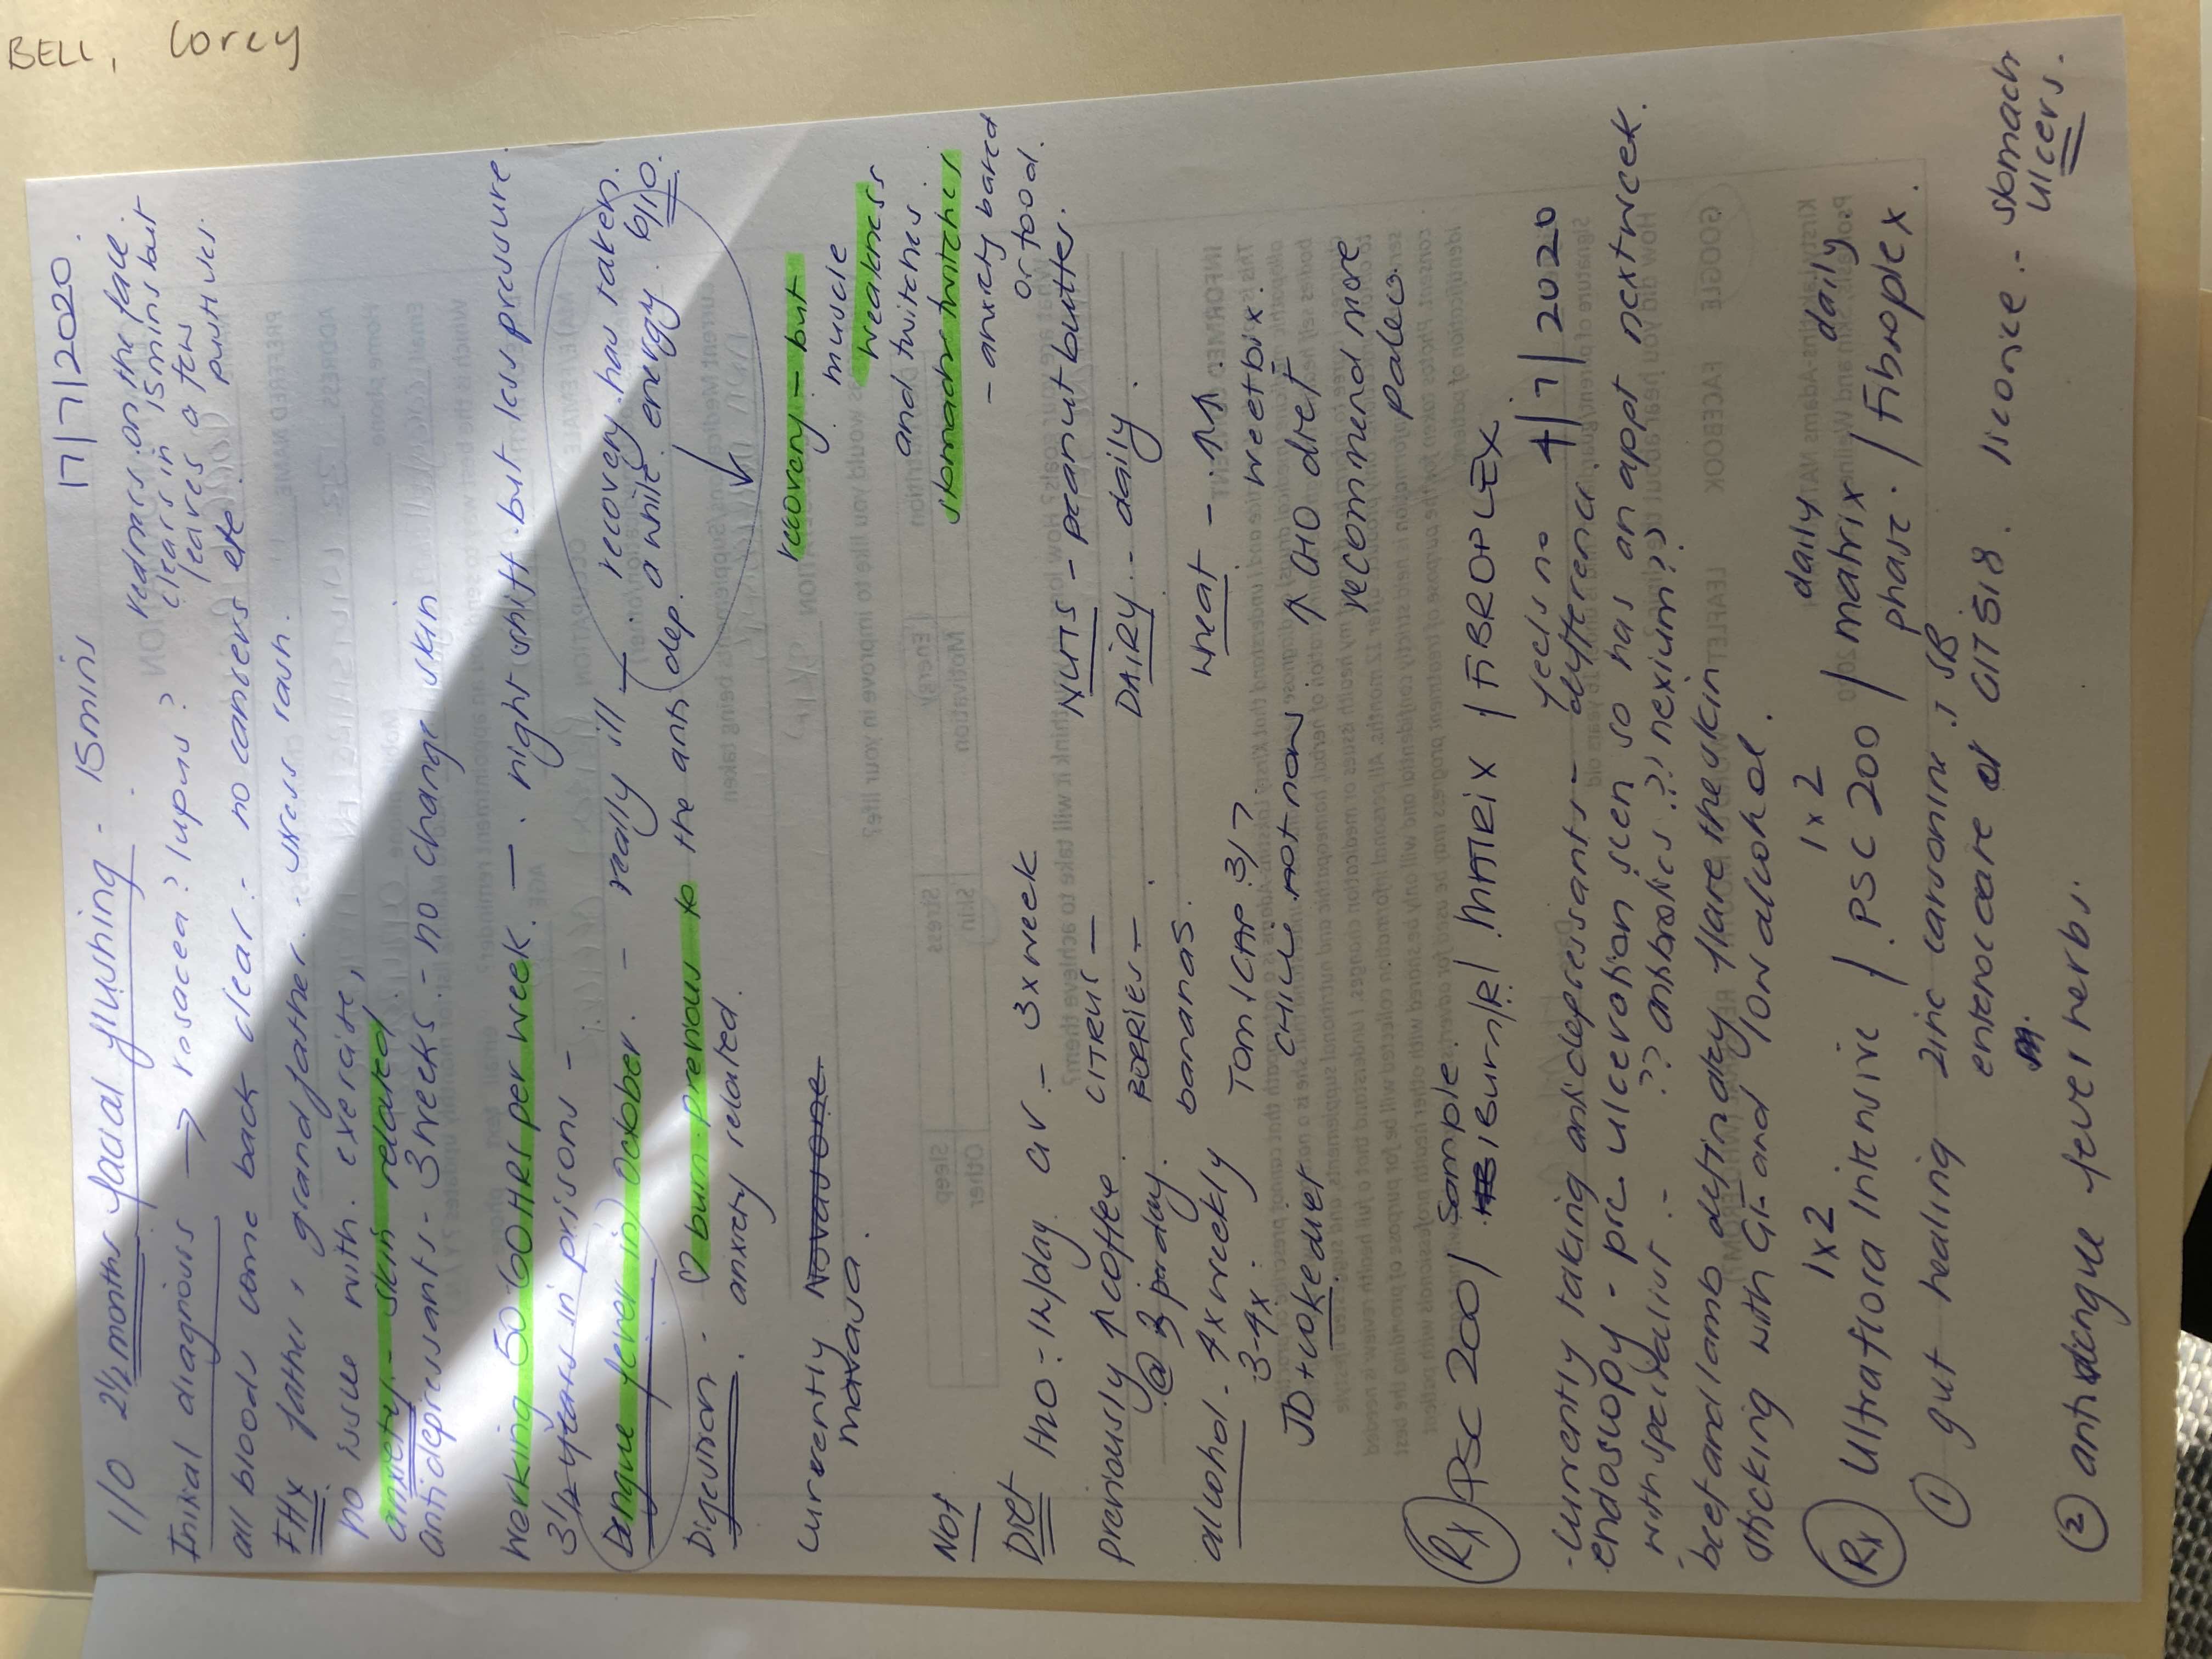 BELL, Corey
17/7/2020
1/0 2½ months facial flushing - 15mins
redness on the face
clears in 15mins but
leaves a few
pustules.
Initial diagnosis → rosacea? lupus?
all bloods come back clear - no cancers etc.
FHx father, grandfather. stress rash.
no issue with exercise,
anxiety - skin related.
antidepressants - 3 weeks - no change skin
working 50-60 HRS per week. - night shift. but less pressure.
3½ years in prisons -
Dengue fever in October. - really ill - recovery has taken
a while energy. 6/10.
Digestion - ♡ burn previous to the anti dep.
anxiety related.
recovery - but
muscle
weakness
and twitches.
stomach twitches
- anxiety based
or food.
currently Novasone
novasa.
Not
Diet H2O - 1L/day CIV - 3x week
NUTS - peanut butter.
previously ↑ coffee. CITRUS -
@ 3 per day. BERRIES -
DAIRY - daily.
bananas.
alcohol - 4x weekly
3-4x.
TOM/CAP 3/7
CHILLI not now
wheat - ↑↑
weetbix.
JD + coke diet
↑ CHO diet
recommend more
paleo.
Rx PSC 200 / sample. Burn/R / MATRIX / FIBROPLEX
4/7/2020
- currently taking antidepressants - feels no difference
endoscopy - pre ulceration seen so has an appt next week.
with specialist - ?? antibiotics ?? nexium??
beef and lamb definitely flare the skin
sticking with GF and low alcohol.
Rx Ultraflora Intensive / PSC 200 / matrix phase / Fibroplex
1x2 1x2 daily daily
① gut healing zinc carnosine
enterocare or GIT 518. licorice - stomach
ulcers.
② anti dengue fever herbs.